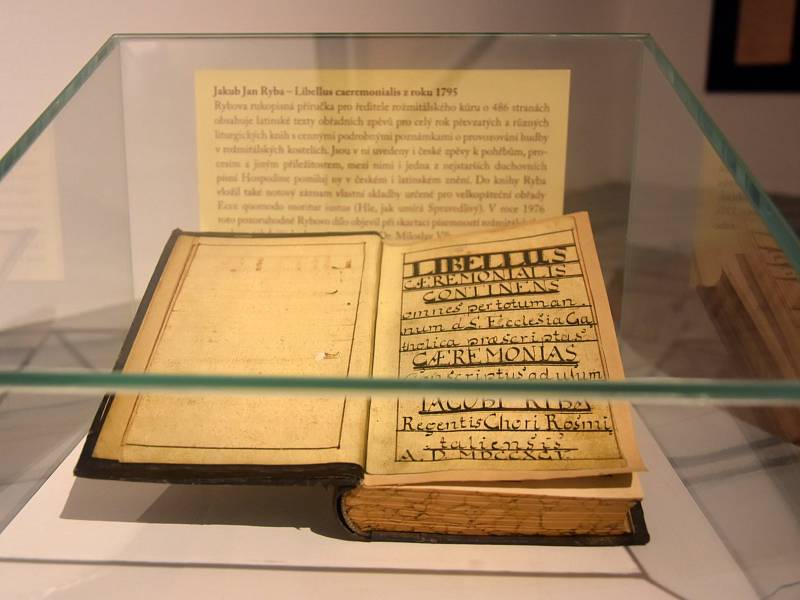 Jakub Jan Ryba – Libellus caeremonialis z roku 1795
Rybova rukopisná příručka pro ředitele rožmitálského kůru o 486 stranách
obsahuje latinské texty obřadních zpěvů pro celý rok převzatých z různých
liturgických knih s cennými podrobnými poznámkami o provozování hudby
v rožmitálských kostelích. Jsou v ní uvedeny i české zpěvy k pohřbům, pro-
cesím a jiným příležitostem, mezi nimi i jedna z nejstarších duchovních
písní Hospodine pomiluj ny v českém i latinském znění. Do knihy Ryba
vložil také notový záznam vlastní skladby určené pro velkopáteční obřady
Ecce quomodo moritur iustus (Hle, jak umírá Spravedlivý). V roce 1976
toto pozoruhodné Rybovo dílo objevil při skartaci písemností
Dr. Miloslav
LIBELLUS
CÆREMONIALIS
CONTINENS
omnes per totum an
num d S. Ecclesia Ca
tholica præscriptas
CÆREMONIAS
Conscriptus ad usum
JACOBI RYBA
Regentis Chori Rosmi
taliensis
A. D. MDCCXCV.